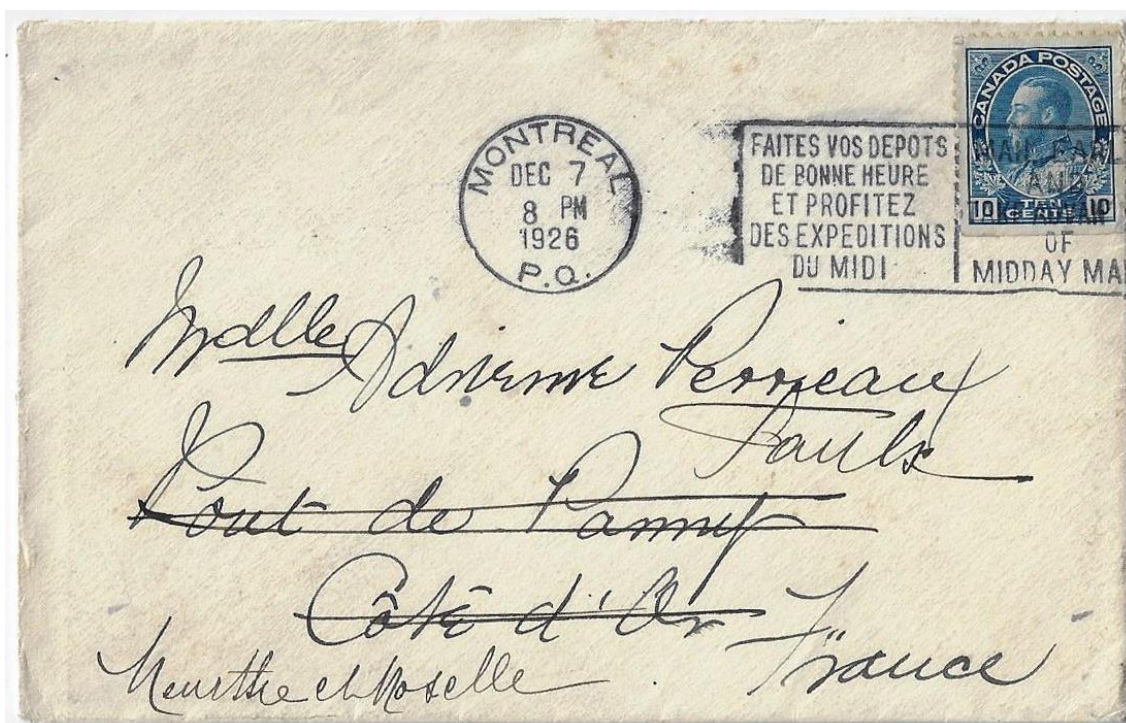 CANADA POSTAGE
10 TEN CENTS 10
MONTREAL
DEC 7
8 PM
1926
P.Q.
FAITES VOS DEPOTS
DE BONNE HEURE
ET PROFITEZ
DES EXPEDITIONS
DU MIDI
MAIL EARL
AND
OF
MIDDAY MAI
Mdlle Adrienne Perrieaux
Pont de Panny
Côte d'Or France
Meurthe et Moselle